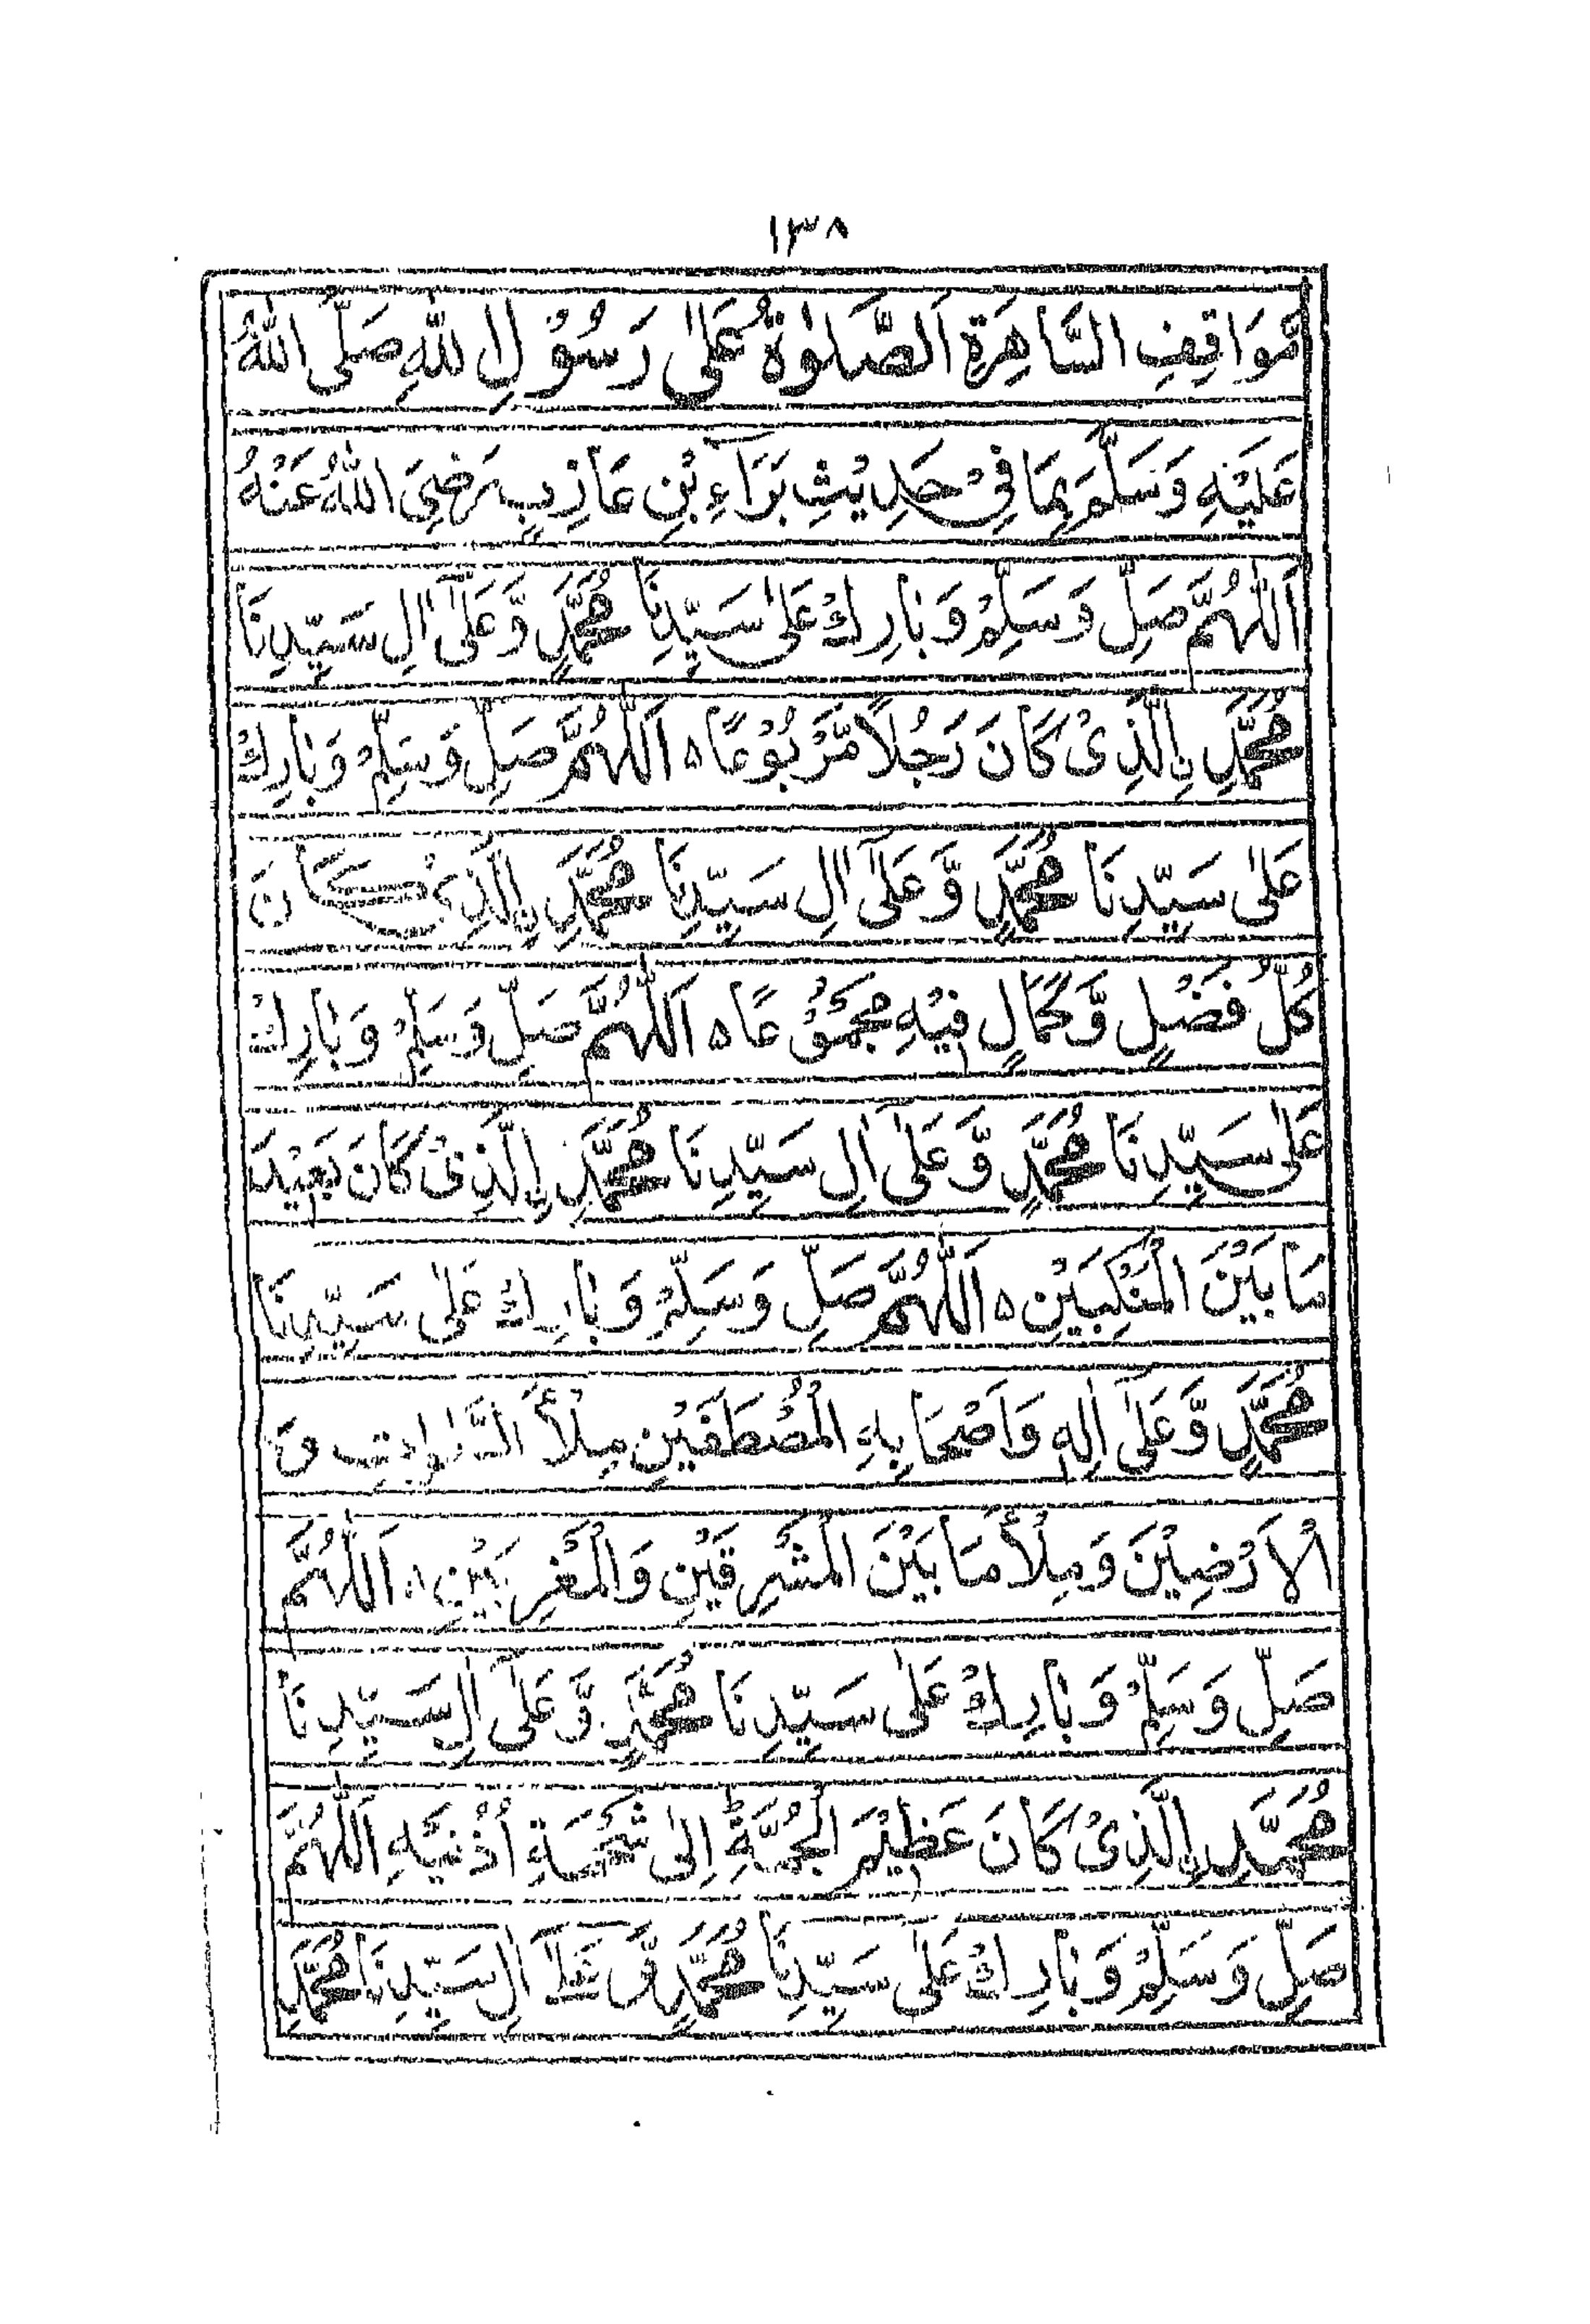 ١٣٨
مَّوَاقِفِ السَّاهِرَةِ اَلصَّلٰوةُ عَلٰى رَسُوْلِ اللّٰهِ صَلَّى اللّٰهُ
عَلَيْهِ وَسَلَّمَ بِمَا فِيْ حَدِيْثِ بَرَآءِ بْنِ عَازِبٍ رَضِيَ اللّٰهُ عَنْهُ
اَللّٰهُمَّ صَلِّ وَسَلِّمْ وَبَارِكْ عَلٰى سَيِّدِنَا مُحَمَّدٍ وَّعَلٰٓى اٰلِ سَيِّدِنَا
مُحَمَّدِ نِ الَّذِىْ كَانَ رَجُلًا مَّرْبُوْعًا ە اَللّٰهُمَّ صَلِّ وَسَلِّمْ وَبَارِكْ
عَلٰى سَيِّدِنَا مُحَمَّدٍ وَّعَلٰٓى اٰلِ سَيِّدِنَا مُحَمَّدِ نِ الَّذِىْ كَانَ
كُلُّ فَضْلٍ وَّكَمَالٍ فِيْهِ مَجْمُوْعًا ە اَللّٰهُمَّ صَلِّ وَسَلِّمْ وَبَارِكْ
عَلٰى سَيِّدِنَا مُحَمَّدٍ وَّعَلٰٓى اٰلِ سَيِّدِنَا مُحَمَّدِ نِ الَّذِىْ كَانَ بَعِيْدَ
مَا بَيْنَ الْمَنْكِبَيْنِ ە اَللّٰهُمَّ صَلِّ وَسَلِّمْ وَبَارِكْ عَلٰى سَيِّدِنَا
مُحَمَّدٍ وَّعَلٰٓى اٰلِهٖ وَاَصْحَابِهِ الْمُصْطَفَيْنِ مِلْأَ السَّمٰوَاتِ وَ
الْاَرْضِيْنَ وَمِلْأَ مَا بَيْنَ الْمَشْرِقَيْنِ وَالْمَغْرِبَيْنِ ە اَللّٰهُمَّ
صَلِّ وَسَلِّمْ وَبَارِكْ عَلٰى سَيِّدِنَا مُحَمَّدٍ وَّعَلٰٓى اٰلِ سَيِّدِنَا
مُحَمَّدِ نِ الَّذِىْ كَانَ عَظِيْمَ الْجُمَّةِ اِلٰى شَحْمَةِ اُذْنَيْهِ اَللّٰهُمَّ
صَلِّ وَسَلِّمْ وَبَارِكْ عَلٰى سَيِّدِنَا مُحَمَّدٍ وَّعَلٰٓى اٰلِ سَيِّدِنَا مُحَمَّدِ